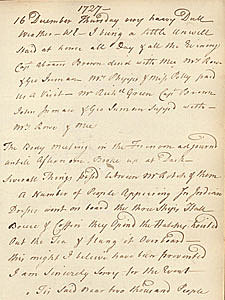 1727
16 December Thursday very heavy Dull
Weather - I being a little Unwell
Staid at home all Day & all the Evening
Capt Brown dined with Me Mr Rowe
& Geo Inman Mr Phipps & Miss Polly paid
us a Visit - Mr Green Capt Brown
John & Geo Inman Supped with
Mrs Rowe & Mee
The Body meeting in the Forenoon adjourned
untill Afternoon - Broke up at Dark
Severall Things passed between Mr & of them
A Number of People Appearing In Indian
Dresses went on board the three Ships Hall
Bruce & Coffin they Opend the Hatches hoisted
Out the Tea & flung it Overboard
this might I believe have been prevented
I am Sincerely Sorry for the Event
Tis Said near two thousand People